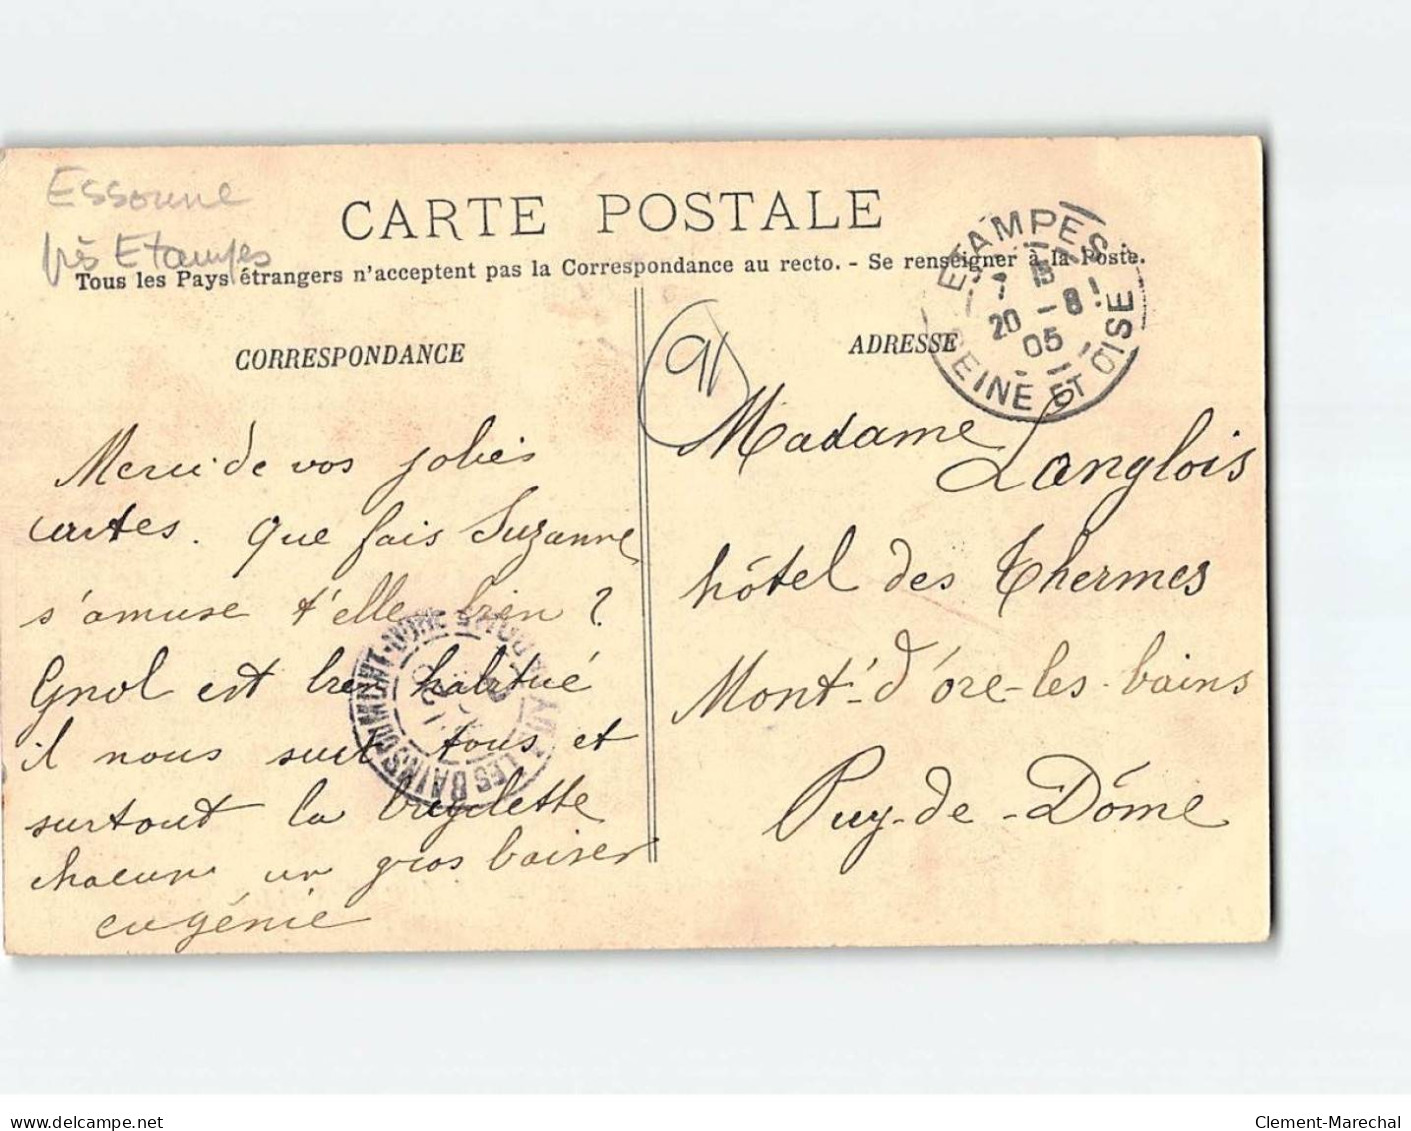 Essonne
près Etampes
CARTE POSTALE
Tous les Pays étrangers n'acceptent pas la Correspondance au recto. - Se renseigner à la Poste.
ETAMPES
7 15
20 -8
05
SEINE ET OISE
CORRESPONDANCE
ADRESSE
91
Merci de vos jolies
cartes. Que fais Suzanne
s'amuse t'elle bien ?
Gnol est bien habitué
il nous suit tous et
surtout la bicyclette
chacun un gros baiser
eugénie
LES BAINS DU MONT-DORE
Madame
Langlois
hôtel des Thermes
Mont-d'ore-les-bains
Puy-de-Dôme
www.delcampe.net
Clement-Marechal